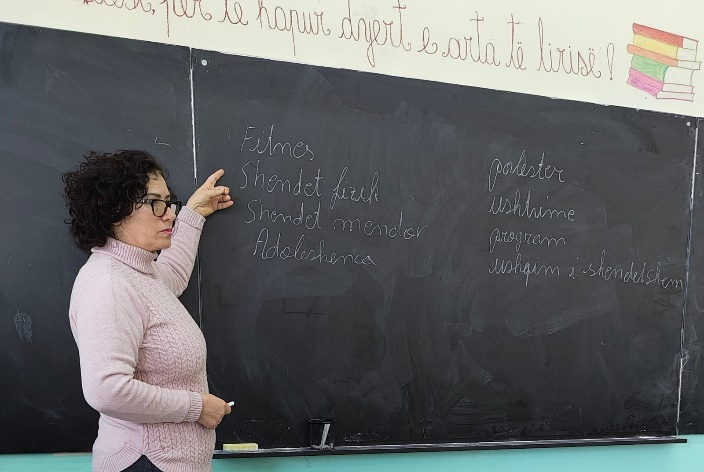 për të hapur dyert e arta të lirisë!
Fitnes
Shendet fizik
Shendet mendor
Adoleshenca
palester
ushtrime
program
ushqim i shendetshem